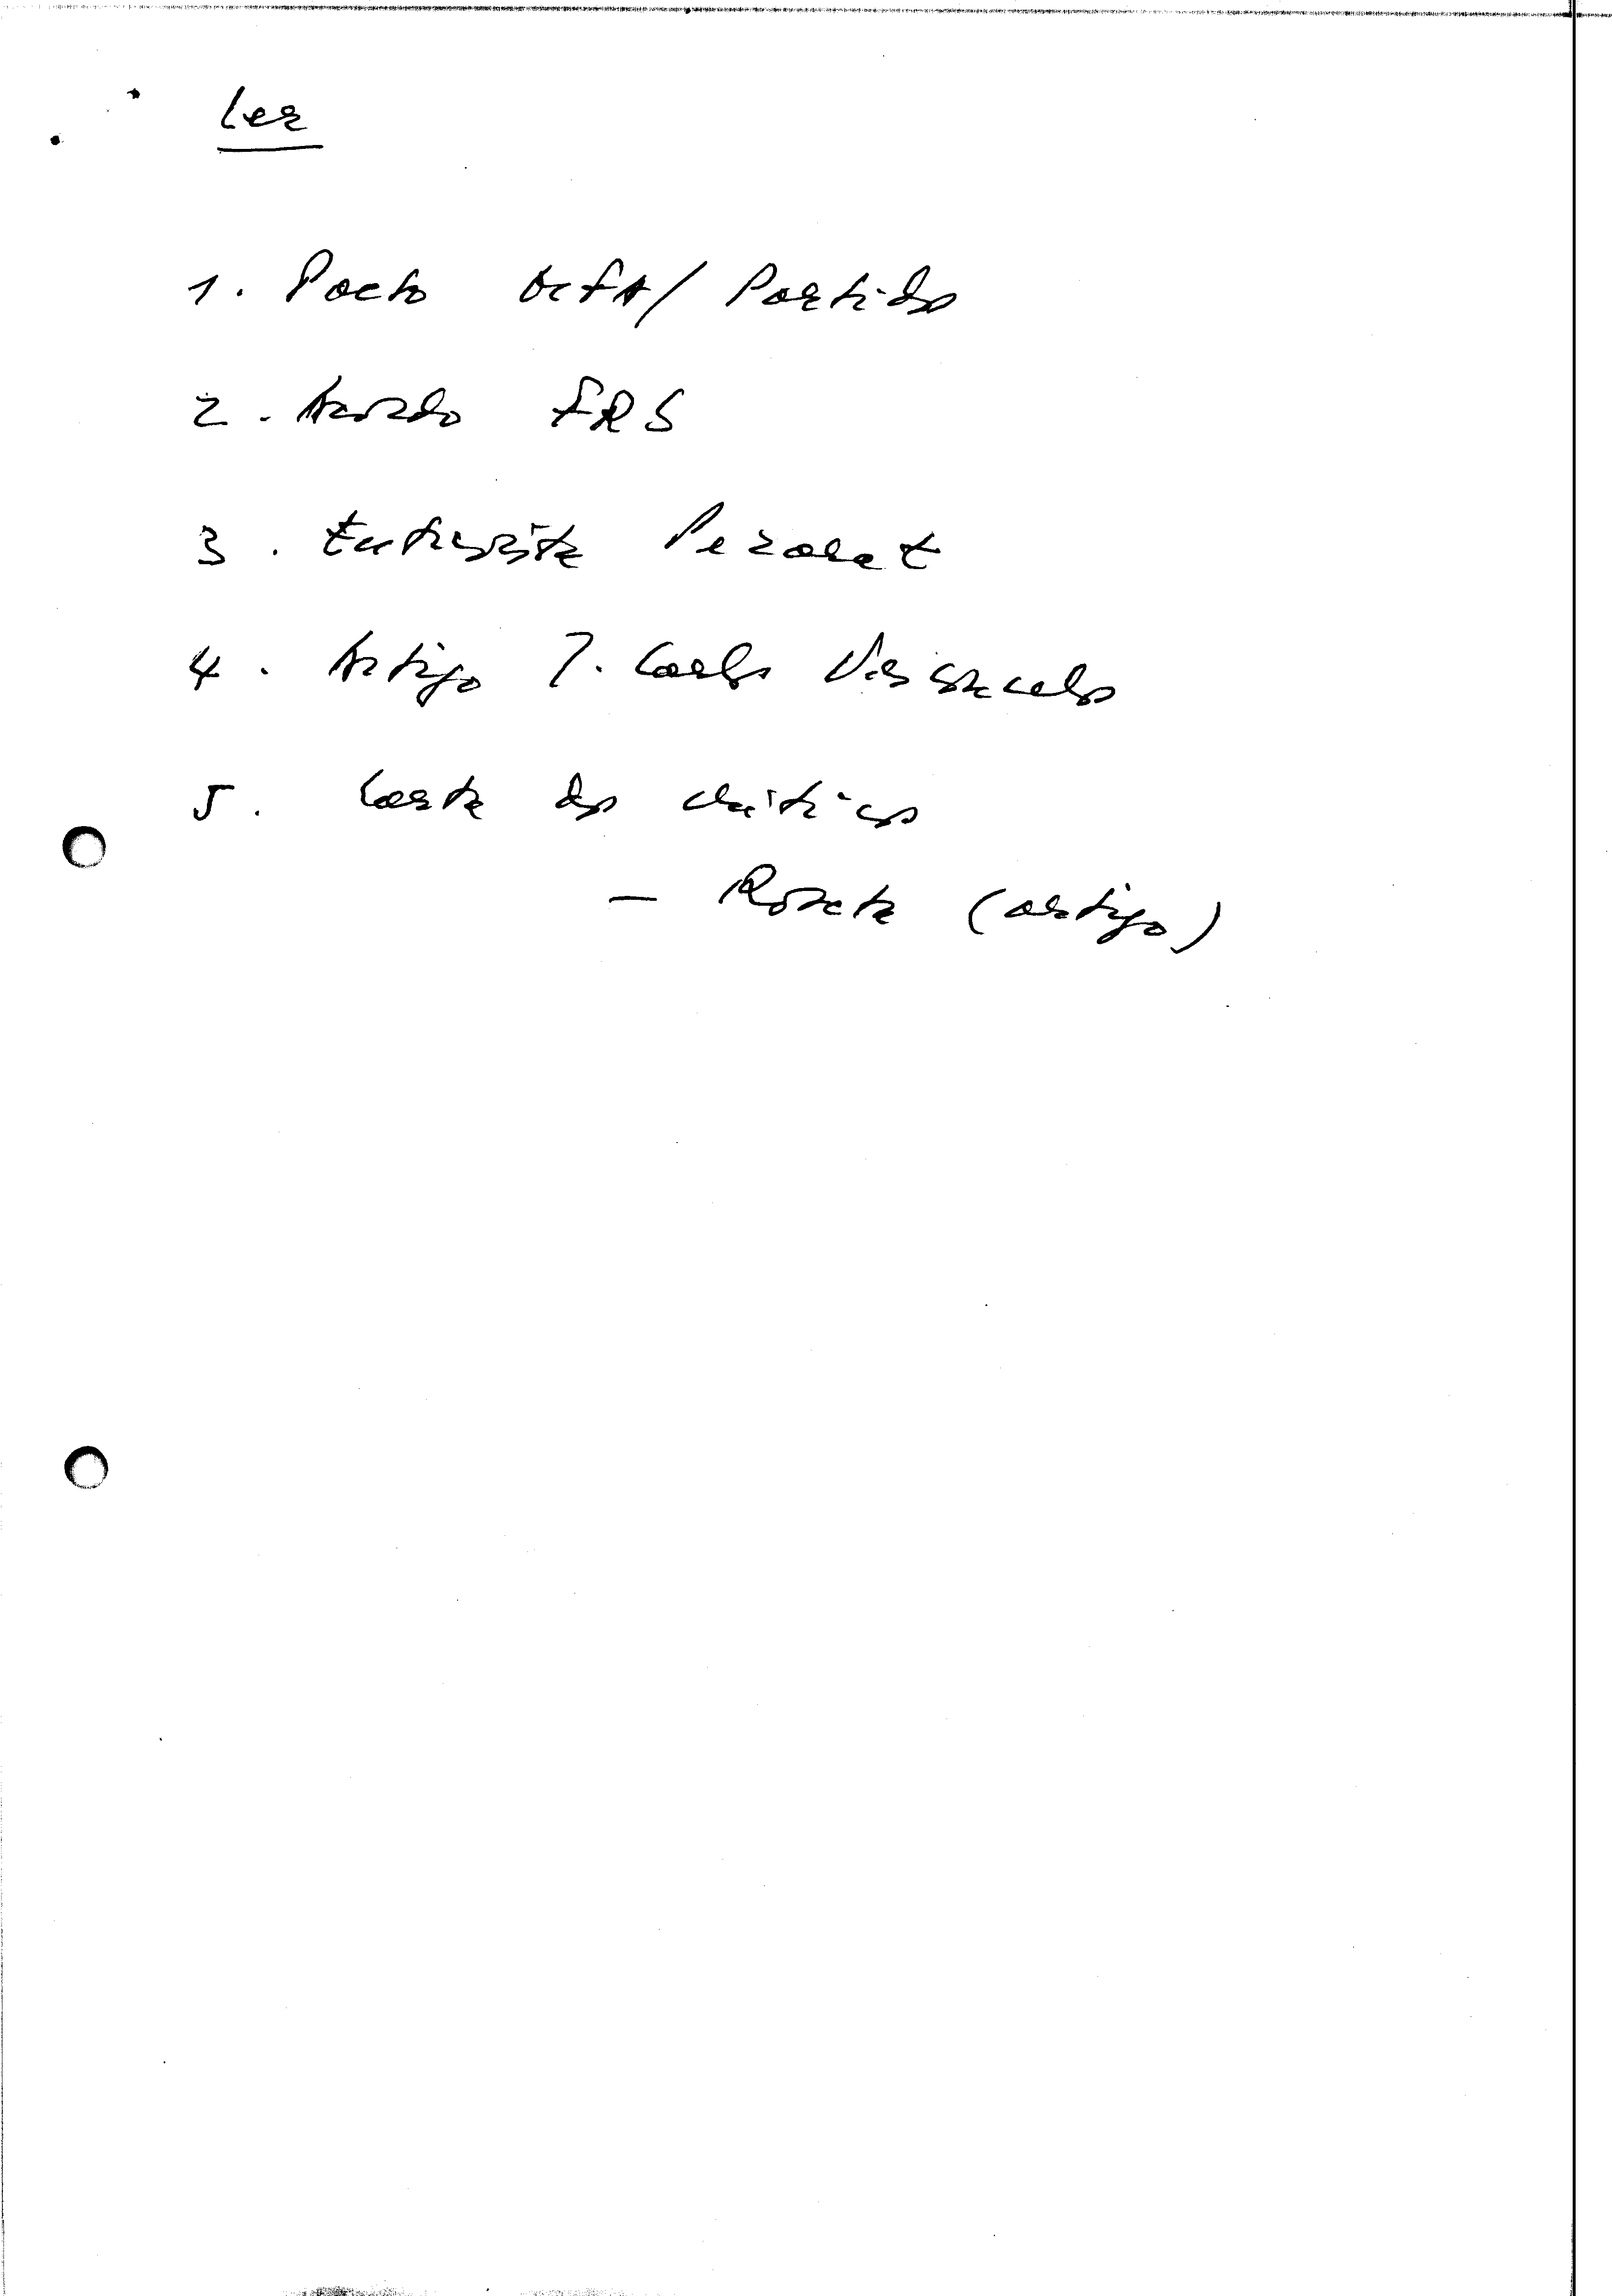 Ler
1. Pacto MFA/Partidos
2. Acordo FRS
3. Entrevista Pezarat
4. Artigo J. Carlos Vasconcelos
5. Carta dos críticos
- Roseta (artigo)